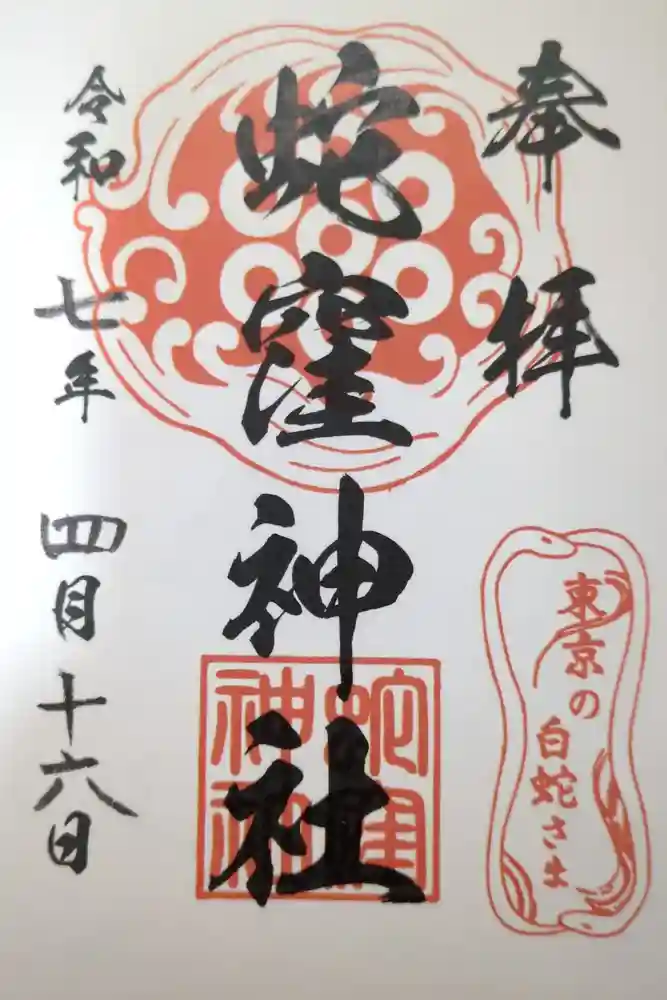 奉拝
東京の
白蛇さま
蛇窪神社
蛇窪
神社
令和七年四月十六日